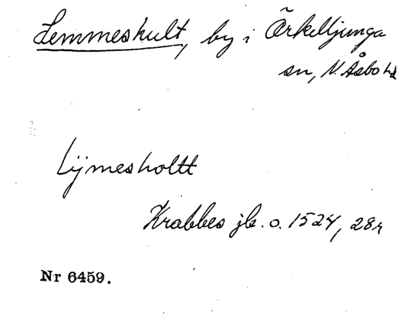 Lemmeshult, by i Örkelljunga
sn, N. Åsbo hd
Lijmesholtt
Krabbes jb. o. 1524, 28r
Nr 6459.